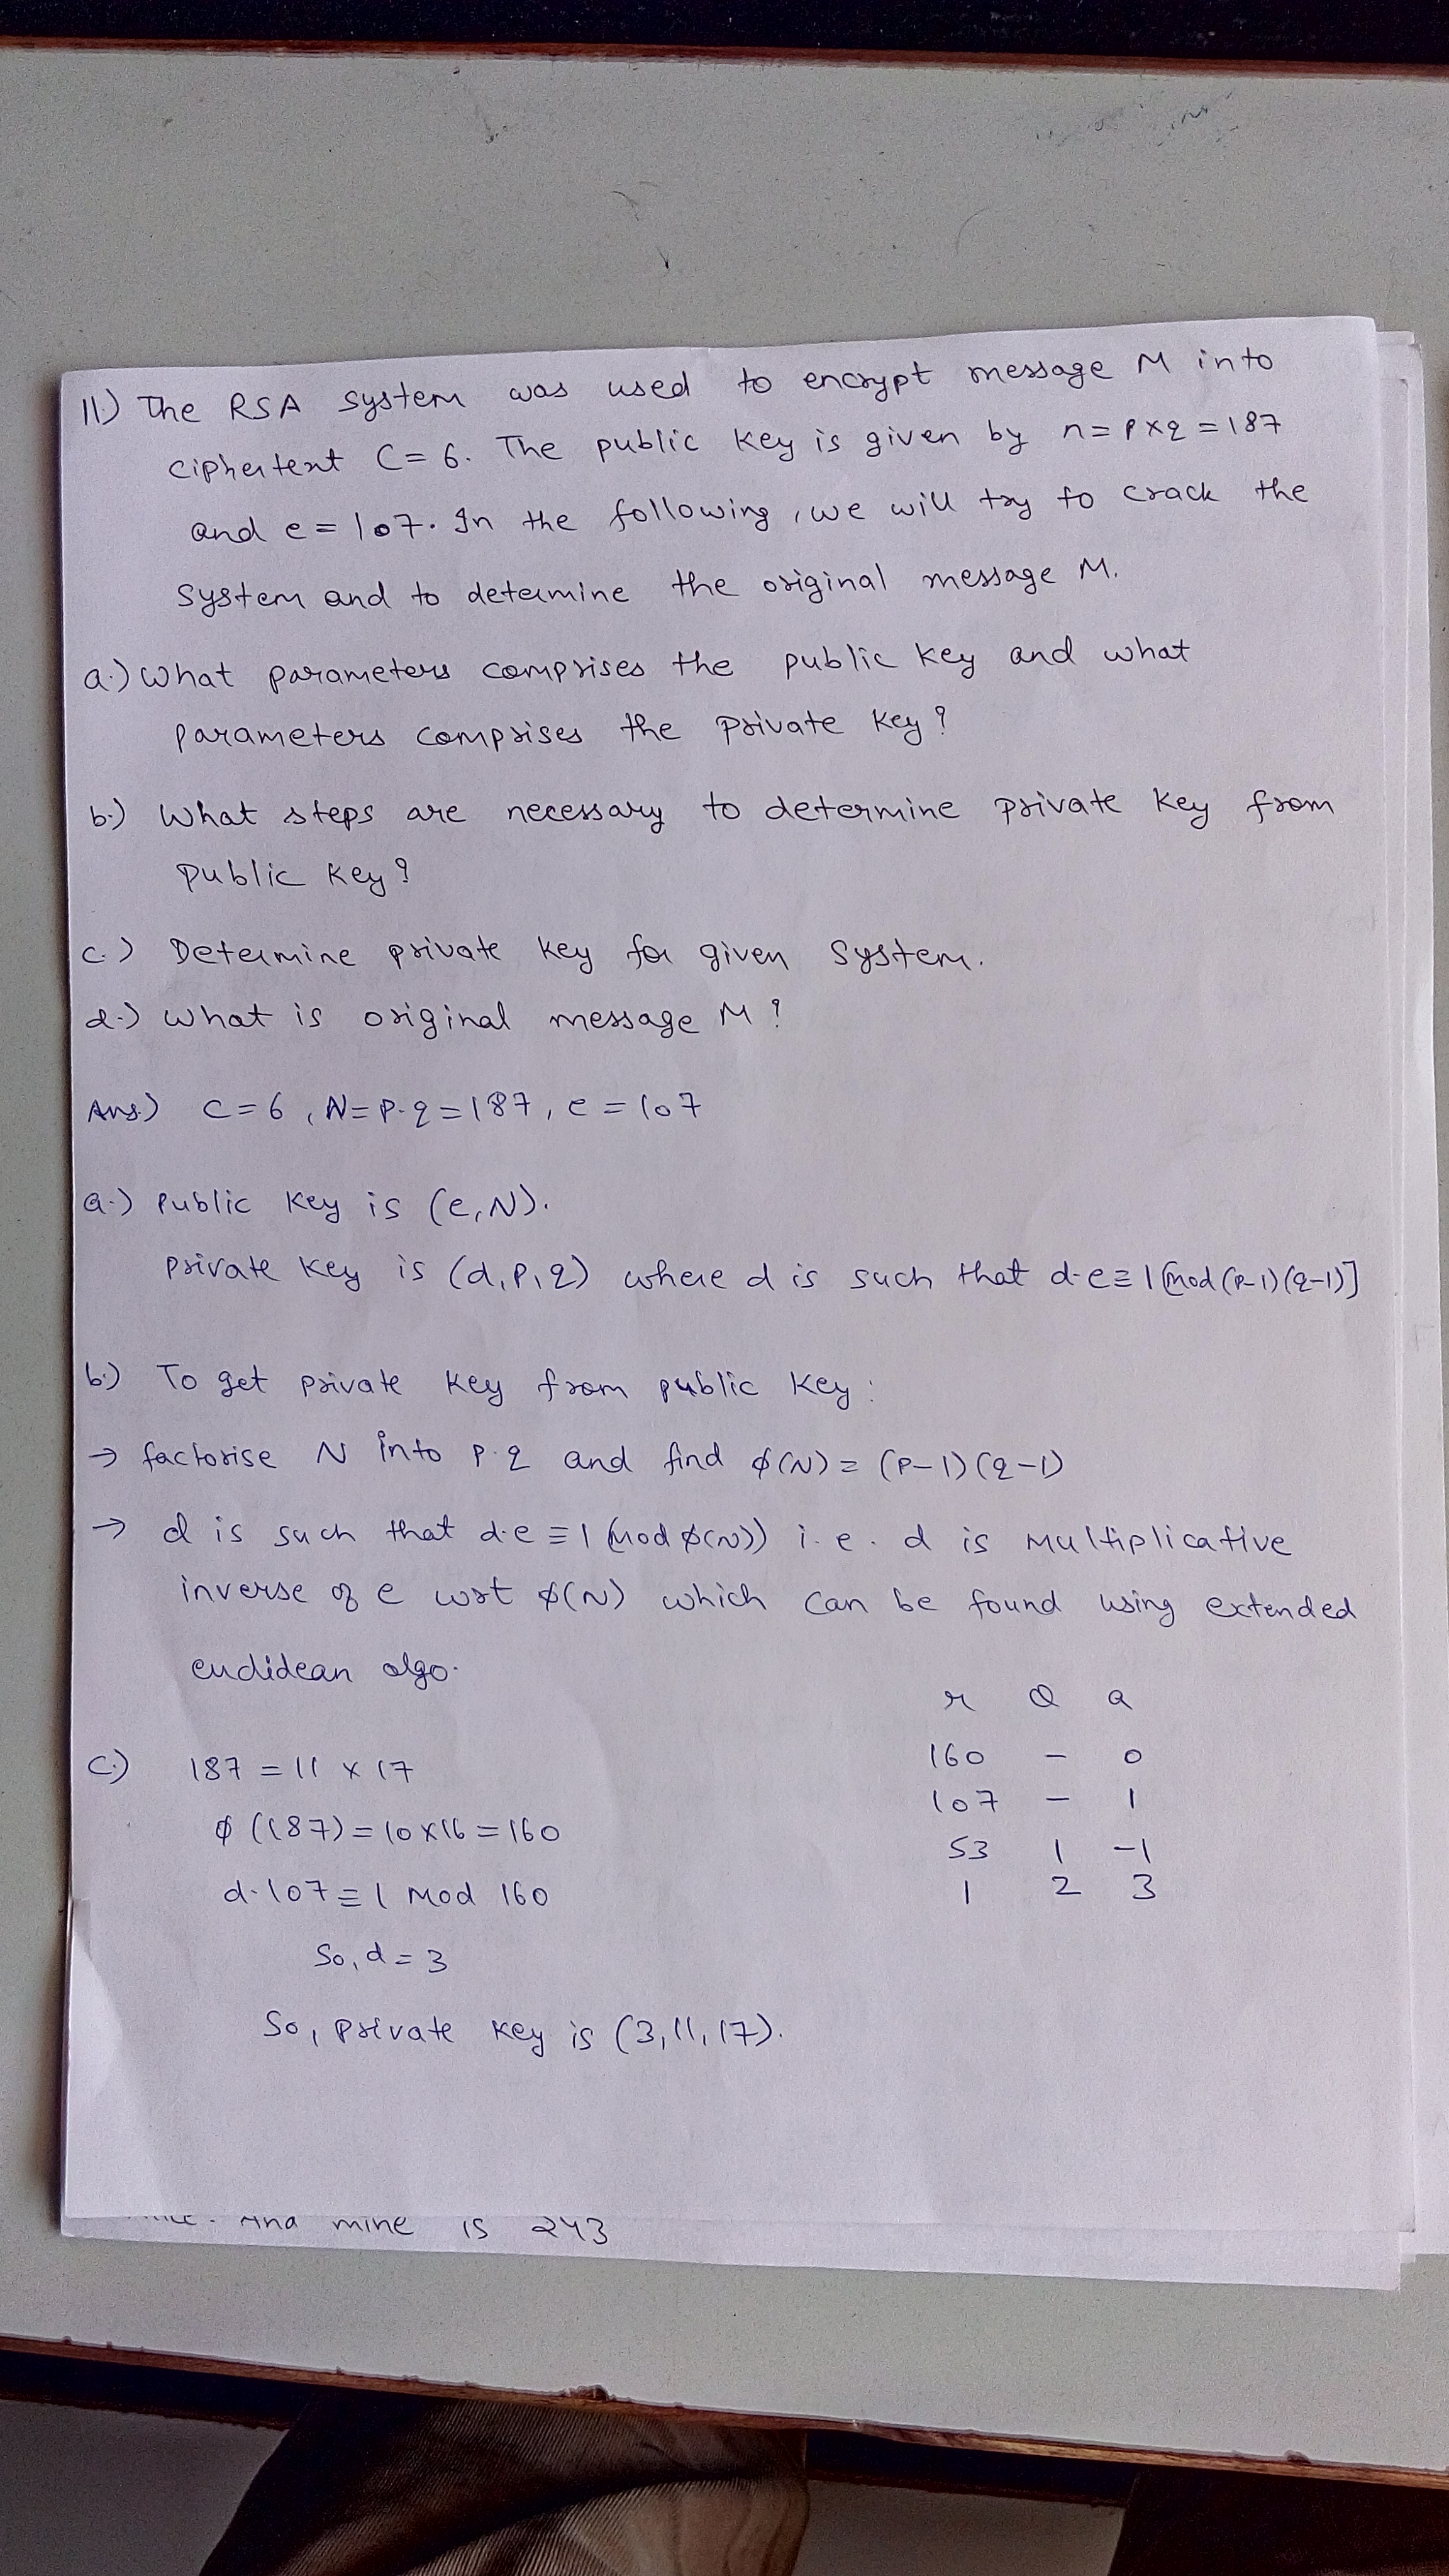 11.) The RSA system was used to encrypt message M into
ciphertext C=6. The public key is given by n=p×q=187
and e=107. In the following, we will try to crack the
system and to determine the original message M.
a.) What parameters comprises the public key and what
parameters comprises the private key?
b.) What steps are necessary to determine private key from
public key?
c.) Determine private key for given system.
d.) What is original message M?
Ans.) C=6, N=p.q=187, e=107
a.) Public key is (e,N).
Private key is (d,p,q) where d is such that d.e≡1[mod(p-1)(q-1)]
b.) To get private key from public key:
→ factorise N into p.q and find ϕ(N)=(p-1)(q-1)
→ d is such that d.e≡1(mod ϕ(N)) i.e. d is multiplicative
inverse of e wrt ϕ(N) which can be found using extended
euclidean algo.
c.) 187=11×17
ϕ(187)=10×16=160
d.107≡1 mod 160
So, d=3
So, private key is (3,11,17).
r Q a
160 - 0
107 - 1
53 1 -1
1 2 3
And mine is 243